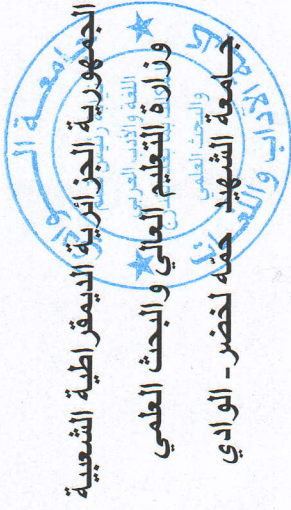 الجمهورية الجزائرية الديمقراطية الشعبية
وزارة التعليم العالي والبحث العلمي
جامعة الشهيد حمّه لخضر - الوادي
جامعة الوادي
اللغة والأدب العربي
والبحث العلمي